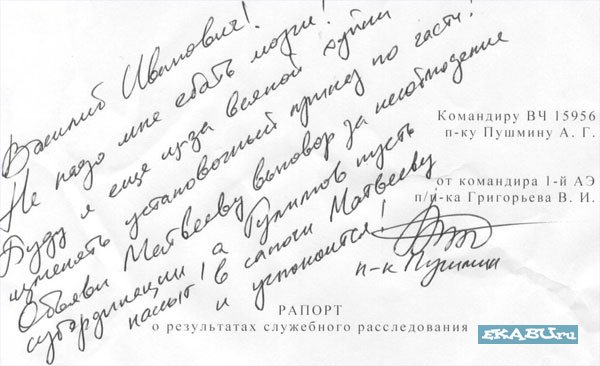 Василий Иванович!
Не надо мне ебать мозги!
Буду я ещё из-за всякой хуйни
изменять установочный приказ по части!
Объяви Матвееву выговор за несоблюдение
субординации, а пусть
нассыт в сапоги Матвееву
и успокоится!
п-к Пушмин
Командиру ВЧ 15956
п-ку Пушмину А. Г.
от командира 1-й АЭ
п/п-ка Григорьева В. И.
РАПОРТ
о результатах служебного расследования
EKABU.ru